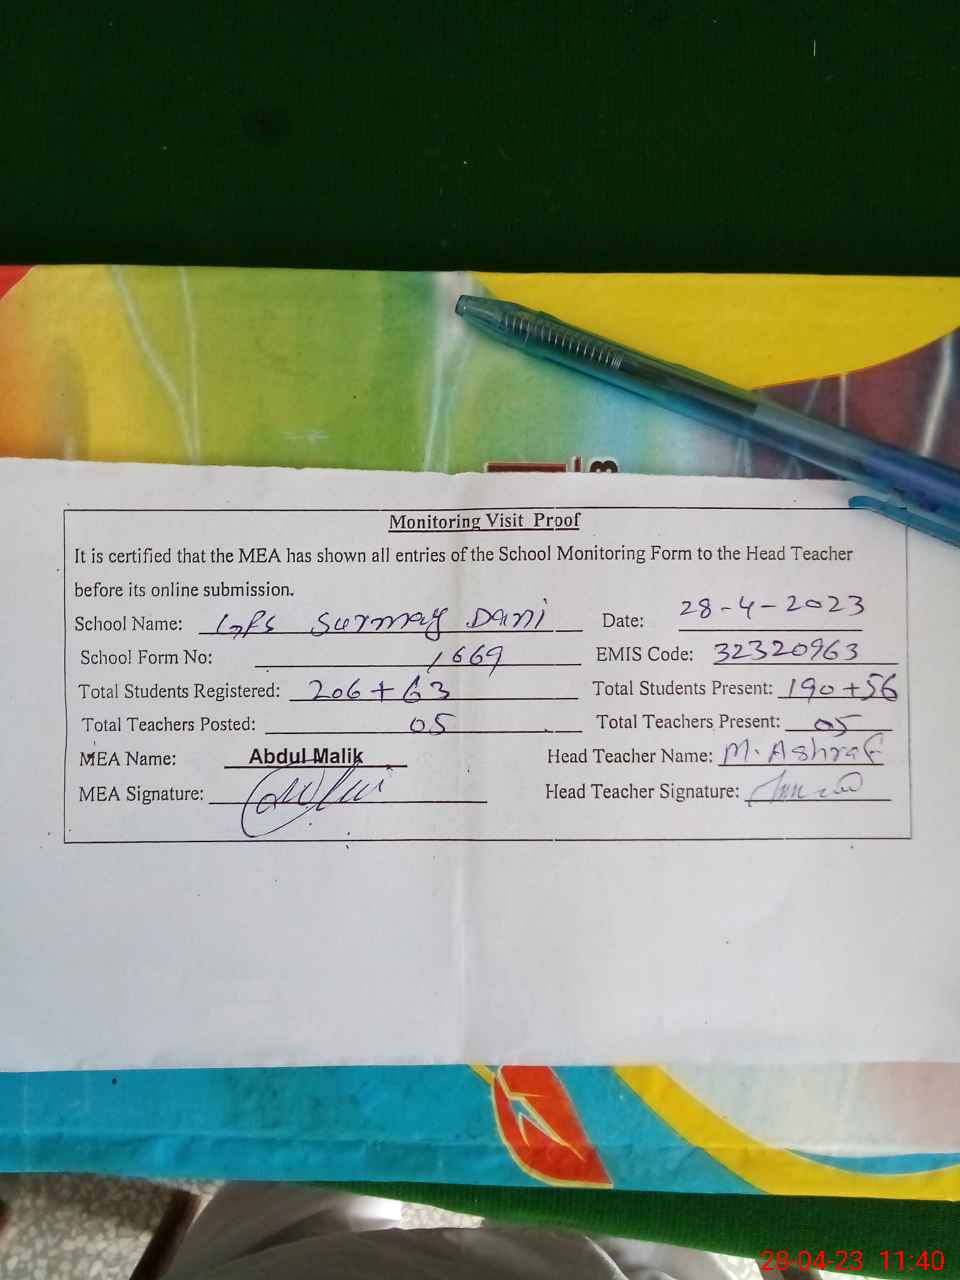 Monitoring Visit Proof
It is certified that the MEA has shown all entries of the School Monitoring Form to the Head Teacher
before its online submission.
School Name: GPS Surmay Dani Date: 28-4-2023
School Form No: 1669 EMIS Code: 32320963
Total Students Registered: 206+63 Total Students Present: 190+56
Total Teachers Posted: 05 Total Teachers Present: 05
MEA Name: Abdul Malik Head Teacher Name: M. Ashraf
MEA Signature: Head Teacher Signature:
28-04-23 11:40